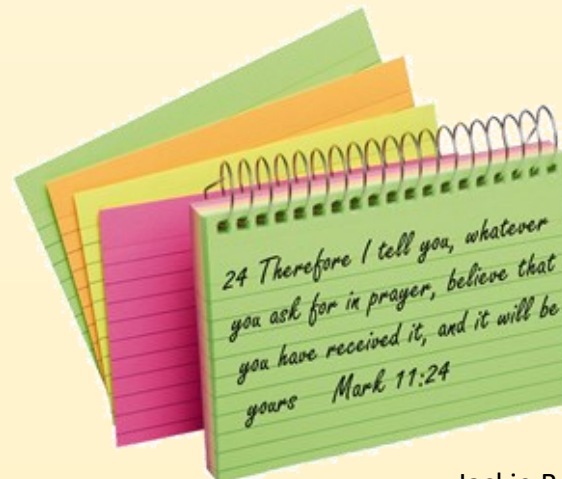 24 Therefore I tell you, whatever
you ask for in prayer, believe that
you have received it, and it will be
yours Mark 11:24